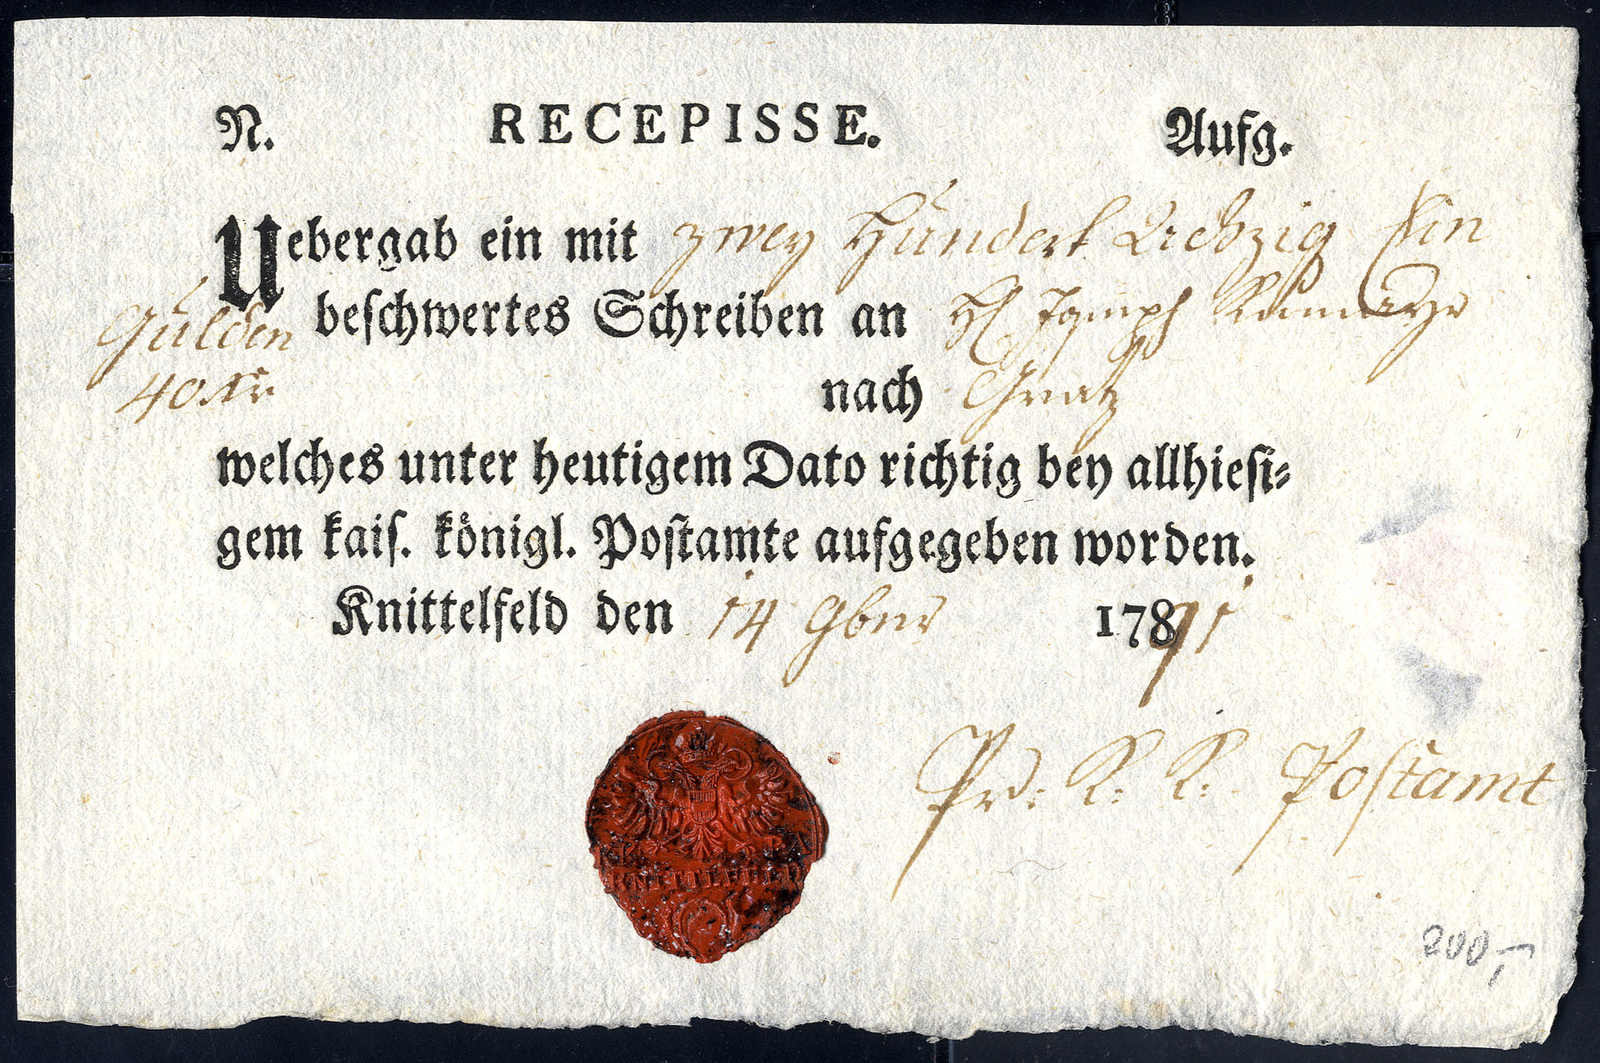 N. RECEPISSE. Aufg.
Uebergab ein mit zwey Hundert
Gulden beschwertes Schreiben an
40 Kr nach Gratz
welches unter heutigem Dato richtig bey allhiesi=
gem kais. königl. Postamte aufgegeben worden.
Knittelfeld den 14 9ber 1791
Pr: K: K: Postamt
KNITTELFELD
200,-